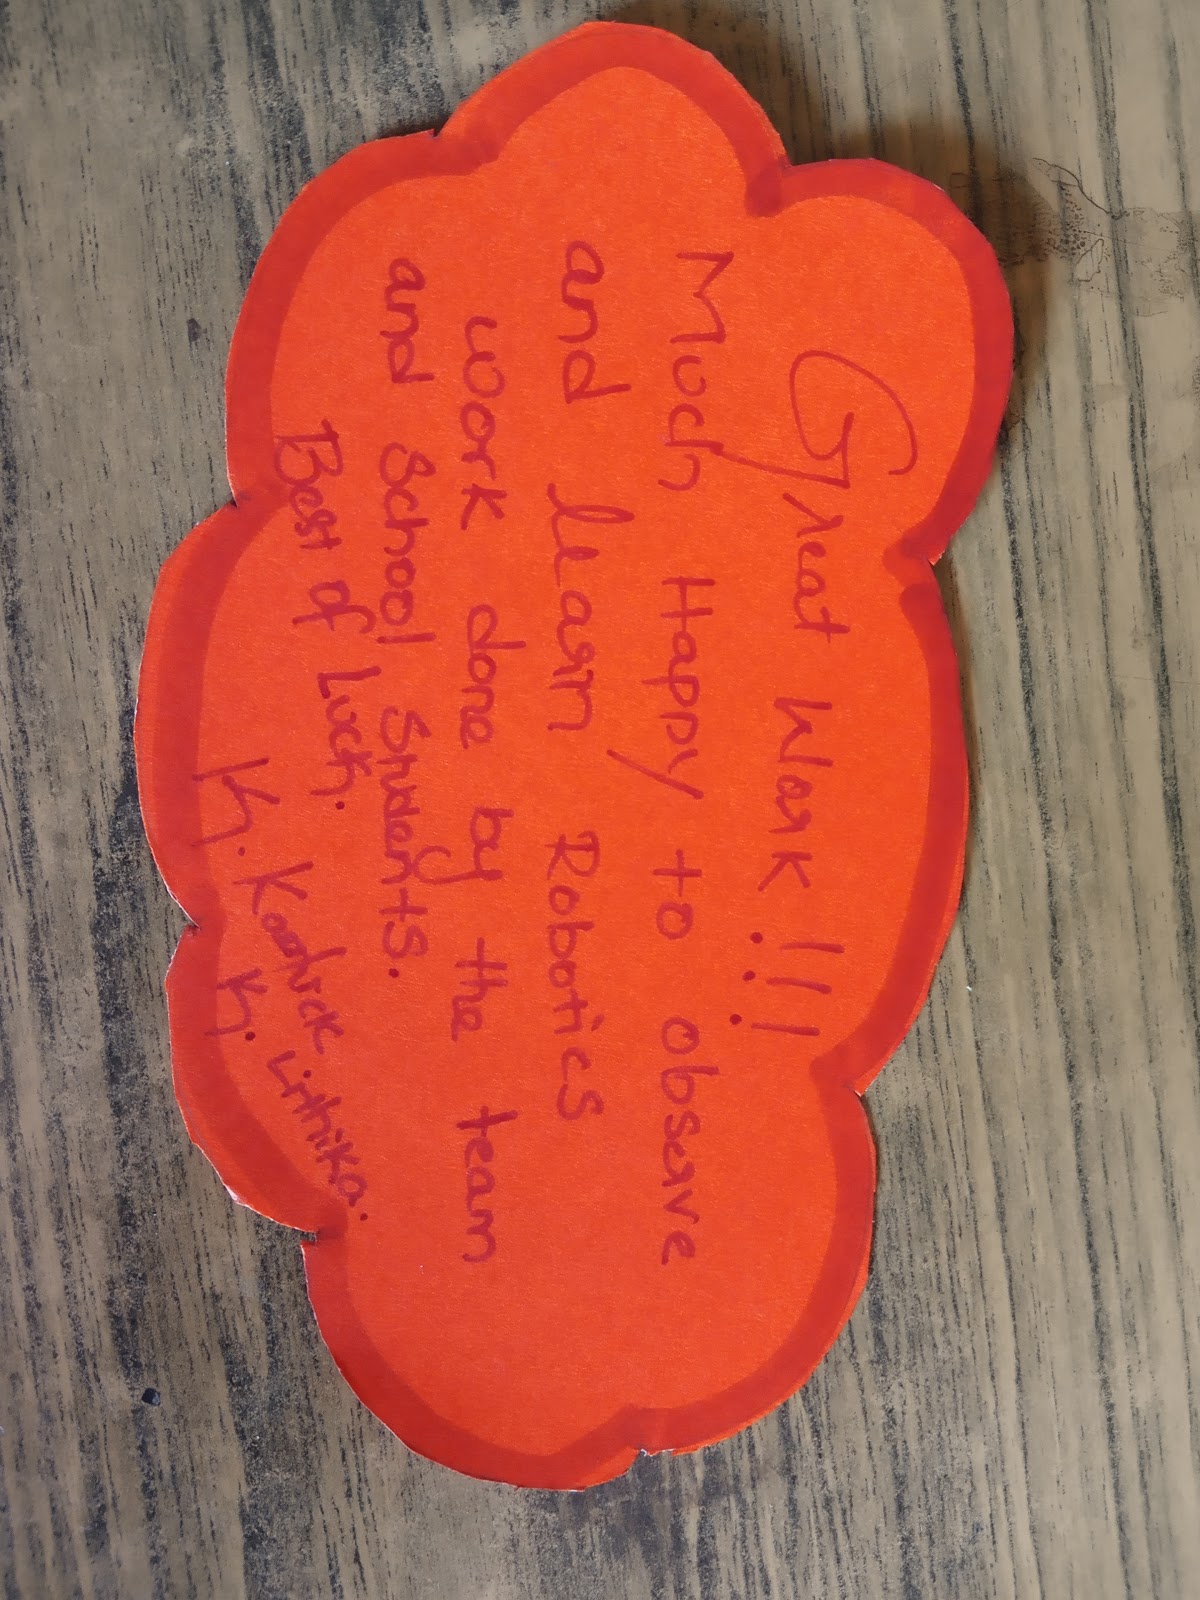 Great Work !!!
Much Happy to observe
and learn Robotics
work done by the team
and School Students.
Best of Luck.
K. Karthick
K. Lirthika.